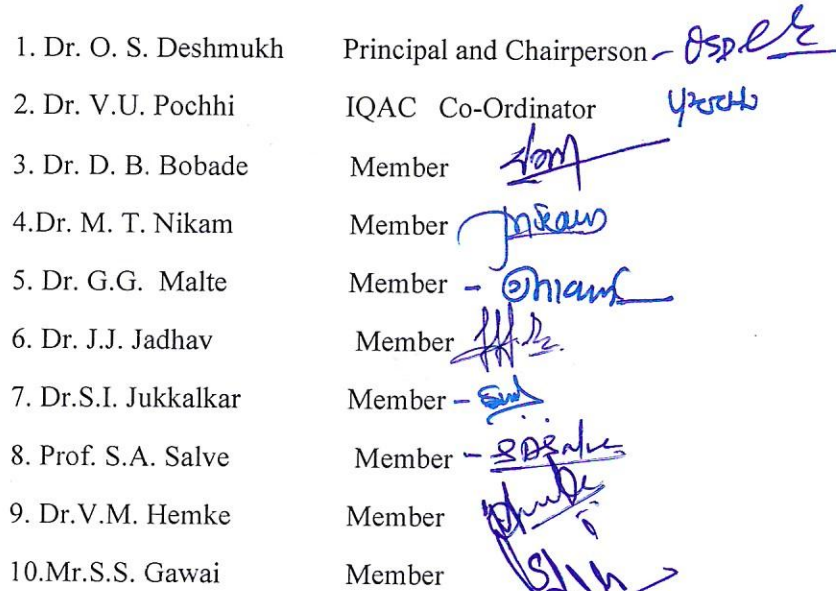 1. Dr. O. S. Deshmukh Principal and Chairperson -
2. Dr. V.U. Pochhi IQAC Co-Ordinator
3. Dr. D. B. Bobade Member
4.Dr. M. T. Nikam Member
5. Dr. G.G. Malte Member -
6. Dr. J.J. Jadhav Member
7. Dr.S.I. Jukkalkar Member -
8. Prof. S.A. Salve Member - SASalve
9. Dr.V.M. Hemke Member
10.Mr.S.S. Gawai Member